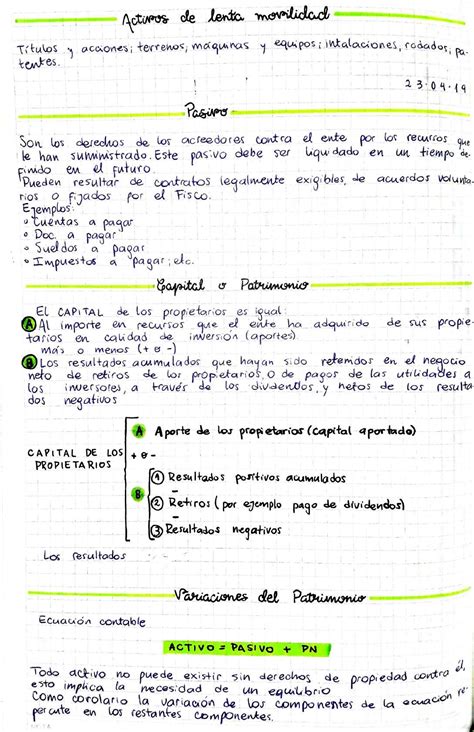 Activos de lenta movilidad
Títulos y acciones; terrenos, máquinas y equipos; intalaciones, rodados, pa-
tentes.
23·04·19
Pasivo
Son los derechos de los acreedores contra el ente por los recursos que
le han suministrado. Este pasivo debe ser liquidado en un tiempo de-
finido en el futuro.
Pueden resultar de contratos legalmente exigibles, de acuerdos volunta-
rios o fijados por el Fisco.
Ejemplos:
• Cuentas a pagar
• Doc. a pagar
• Sueldos a pagar
• Impuestos a pagar; etc.
Capital o Patrimonio
El CAPITAL de los propietarios es igual:
A Al importe en recursos que el ente ha adquirido de sus propie-
tarios en calidad de inversión (aportes)
más o menos (+ o -)
B Los resultados acumulados que hayan sido retenidos en el negocio
neto de retiros de los propietarios, o de pagos de las utilidades a
los inversores, a través de los dividendos, y netos de los resulta
dos negativos
A Aporte de los propietarios (capital aportado)
CAPITAL DE LOS + o -
PROPIETARIOS
1 Resultados positivos acumulados
-
B 2 Retiros (por ejemplo pago de dividendos)
-
3 Resultados negativos
Los resultados
Variaciones del Patrimonio
Ecuación contable
ACTIVO = PASIVO + PN
Todo activo no puede existir sin derechos de propiedad contra él,
esto implica la necesidad de un equilibrio
Como corolario la variación de los componentes de la ecuación re-
percute en los restantes componentes.